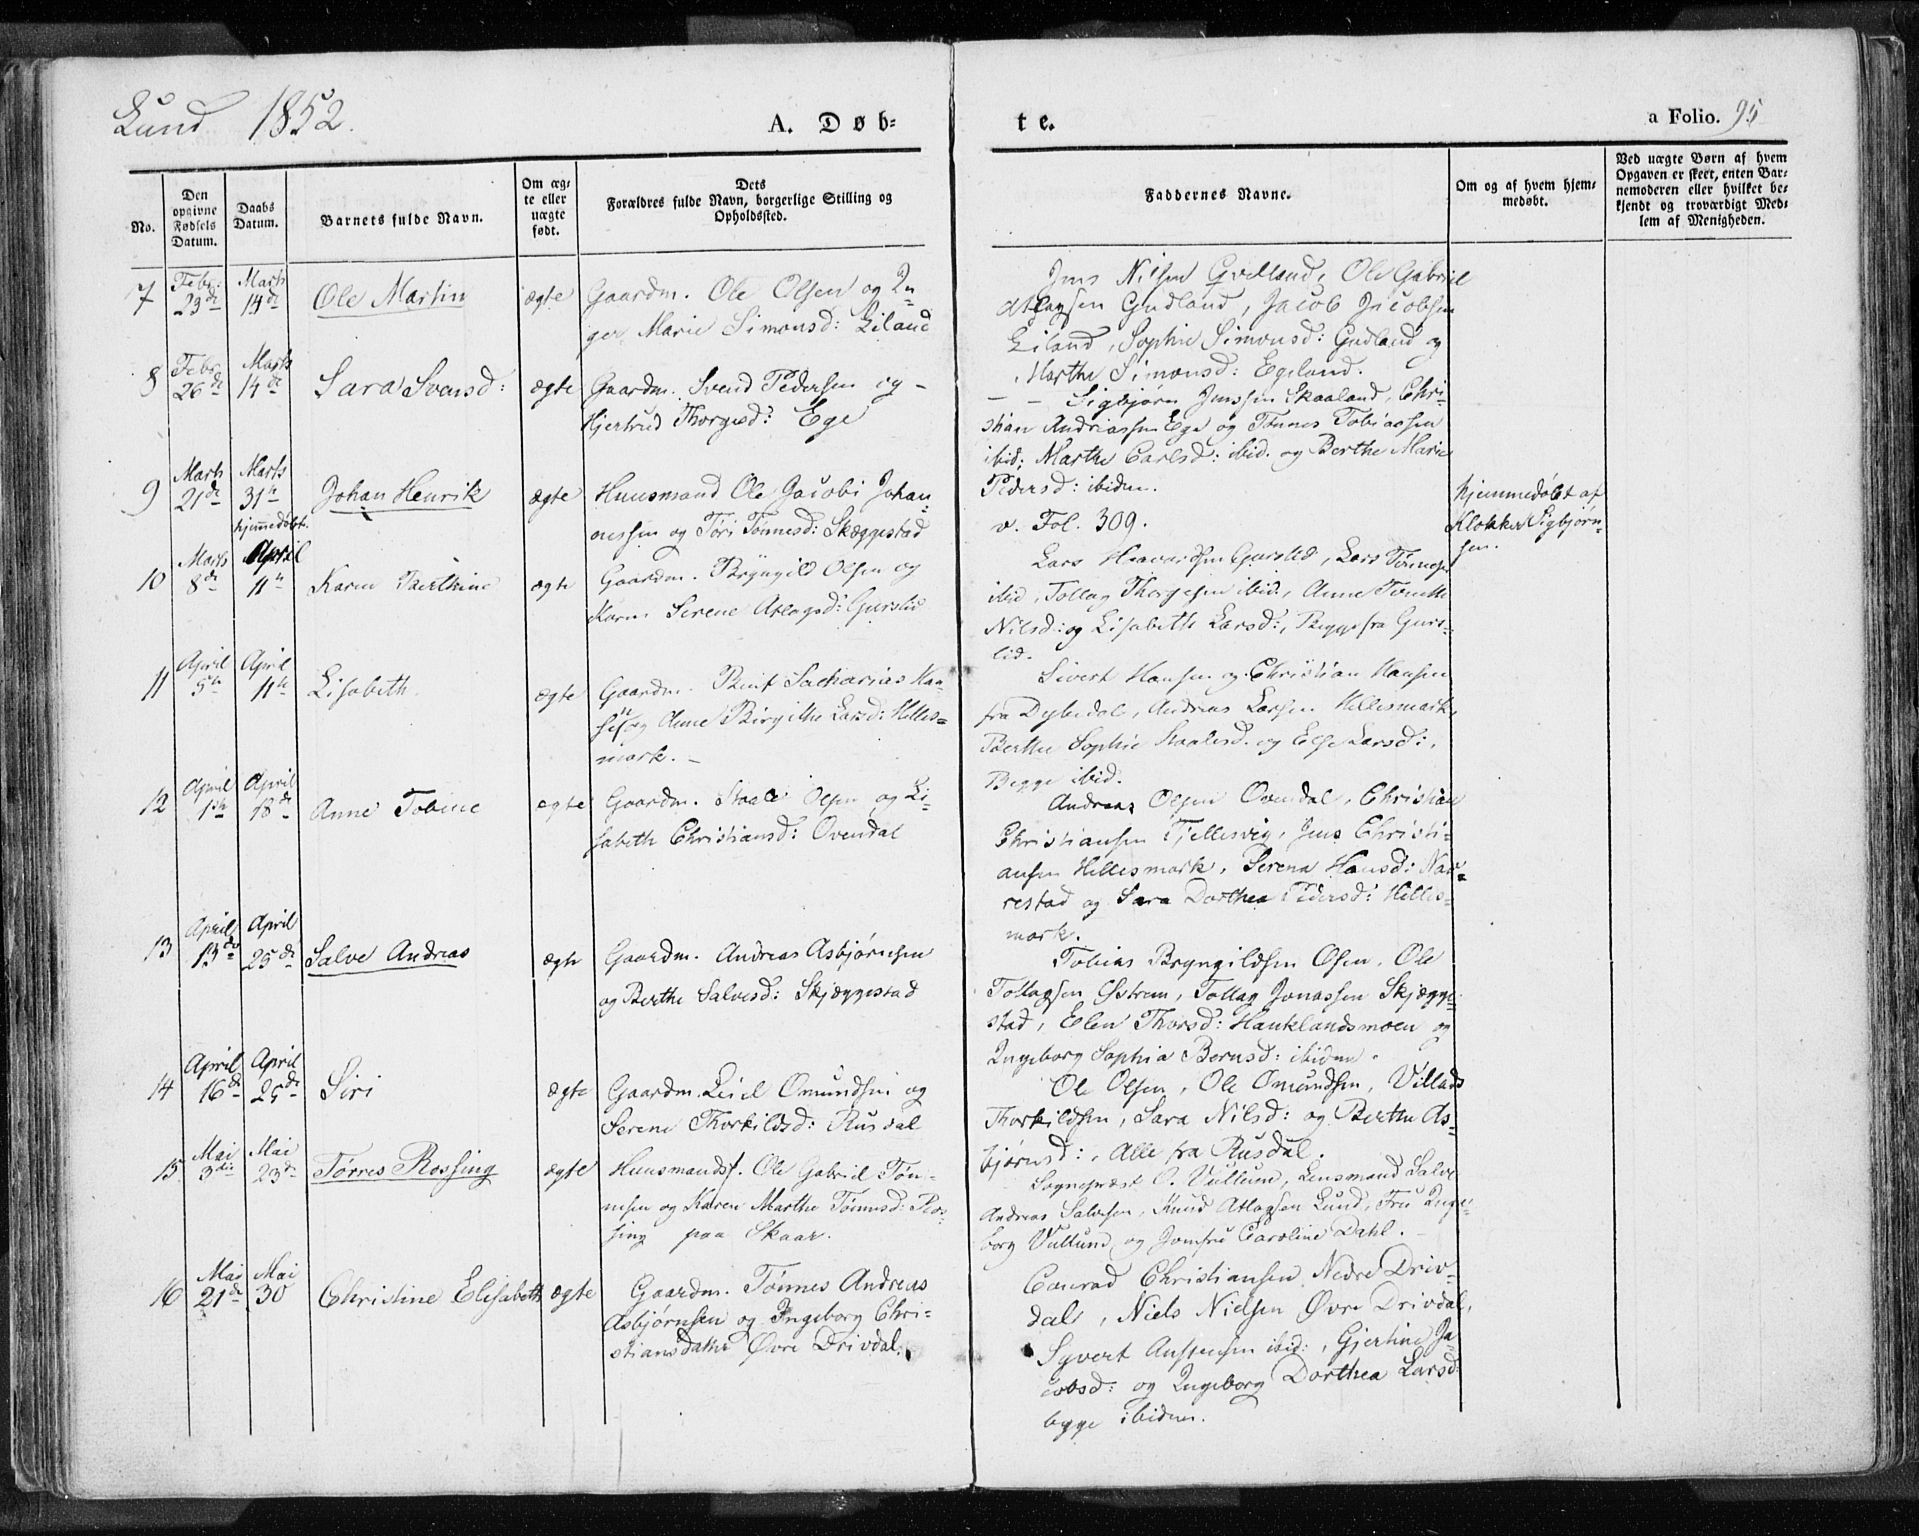 Lund 1852.
A. Døb-
te.
a Folio. 95
No.
Den opgivne Fødsels Datum.
Daabs Datum.
Barnets fulde Navn.
Om ægte eller uægte født.
Dets
Forældres fulde Navn, borgerlige Stilling og
Opholdssted.
Faddernes Navne.
Om og af hvem hjem-
medøbt.
Ved uægte Børn af hvem
Opgaven er skeet, enten Bar-
nemoderen eller hvilket be-
kjendt og troværdigt Med-
lem af Menigheden.
7 Febr: 23de Marts 14de Ole Martin ægte Gaardm. Ole Olsen og In-
ger Marie Simonsd: Eiland
Jens Nilsen Gudland, Ole Gabriel
Atlagsen Gudland, Jacob Jacobsen
Eiland, Sophie Simonsd: Gudland og
Marthe Simonsd: Egeland.
8 Febr. 26de Marts 14de Sara Svensd: ægte Gaardm. Svend Pedersen og -
Hjertrud Thorgesd: Ege
- - Sigbjørn Jenssen Skaaland, Chri-
stian Andreassen Ege og Tønnes Tobiassen
ibid; Marthe Carlsd: ibid. og Berthe Marie
Pedersd: ibidem.
9 Marts 21de Marts 31te hjemmedøbt. Johan Henrik ægte Huusmand Ole Jacobi Johan-
nessen og Tøri Tønnesd: Skæggestad
v. Fol. 309.
hjemmedøbt af
Klokker Sigbjørn-
sen.
10 Marts 8de April 11te Karen Berthine ægte Gaardm. Bryngild Olsen og
Karen Serene Atlagsd: Gurslid
Lars Haavardsen Gurslid, Lars Tønnesen
ibid, Tollag Thorgesen ibid., Anne Tomette
Nilsd: og Lisabeth Larsd:, Begge fra Gurs-
lid.
11 April 5te April 11te Lisabeth ægte Gaardm. Bent Sacharias Han-
sen og Anne Birgithe Larsd: Hilles-
mark. -
Sivert Hansen og Christian Hansen
fra Dybedal, Andreas Larsen Hillesmark,
Berthe Sophie Staalesd. og Else Larsd:,
Begge ibid.
12 April 1te April 18de Anne Tobine ægte Gaardm. Staale Olsen og Li-
sabeth Christiansd: Ovendal
Andreas Olsen Ovendal, Christian
Christiansen Tjellesvig, Jens Christi-
ansen Hillesmark, Serena Hansd: Nar-
restad og Sara Dorthea Pedersd: Hilles-
mark.
13 April 13de April 25de Salve Andreas ægte Gaardm. Andreas Asbjørnsen
og Berthe Salvesd: Skjæggestad
Tobias Bryngildsen Osen, Ole
Tollagsen Østrem, Tollag Jonassen Skjægge-
stad, Elen Thorsd: Hauklandsmoen og
Ingeborg Sophia Berntsd: ibidem.
14 April 16de April 25de Siri ægte Gaardm. Eiel Omundsen og
Serene Thorkildsd: Rusdal
Ole Olsen, Ole Omundsen, Villads
Thorkildsen, Sara Nilsd: og Berthe As-
bjørnsd:, Alle fra Rusdal.
15 Mai 3die Mai 23de Tørres Rossing ægte Huusmandsf. Ole Gabriel Tøn-
nesen og Karen Marthe Tønnesd: Ros-
sing paa Skaar.
Sognepræst O. Vullum, Lensmand Salve
Andreas Salvesen, Knud Atlagsen Lund, Fru Inge-
borg Vullum og Jomfru Caroline Dahl.
16 Mai 21de Mai 30 Christine Elisabeth ægte Gaardm. Tønnes Andreas
Asbjørnsen og Ingeborg Chri-
stiansdatter Øvre Drivdal.
Conrad Christiansen Nedre Driv-
dal, Niels Nielsen Øvre Drivdal,
Syvert Anstensen ibid:, Gjertine Ja-
cobsd: og Ingeborg Dorthea Larsd:
begge ibidem.